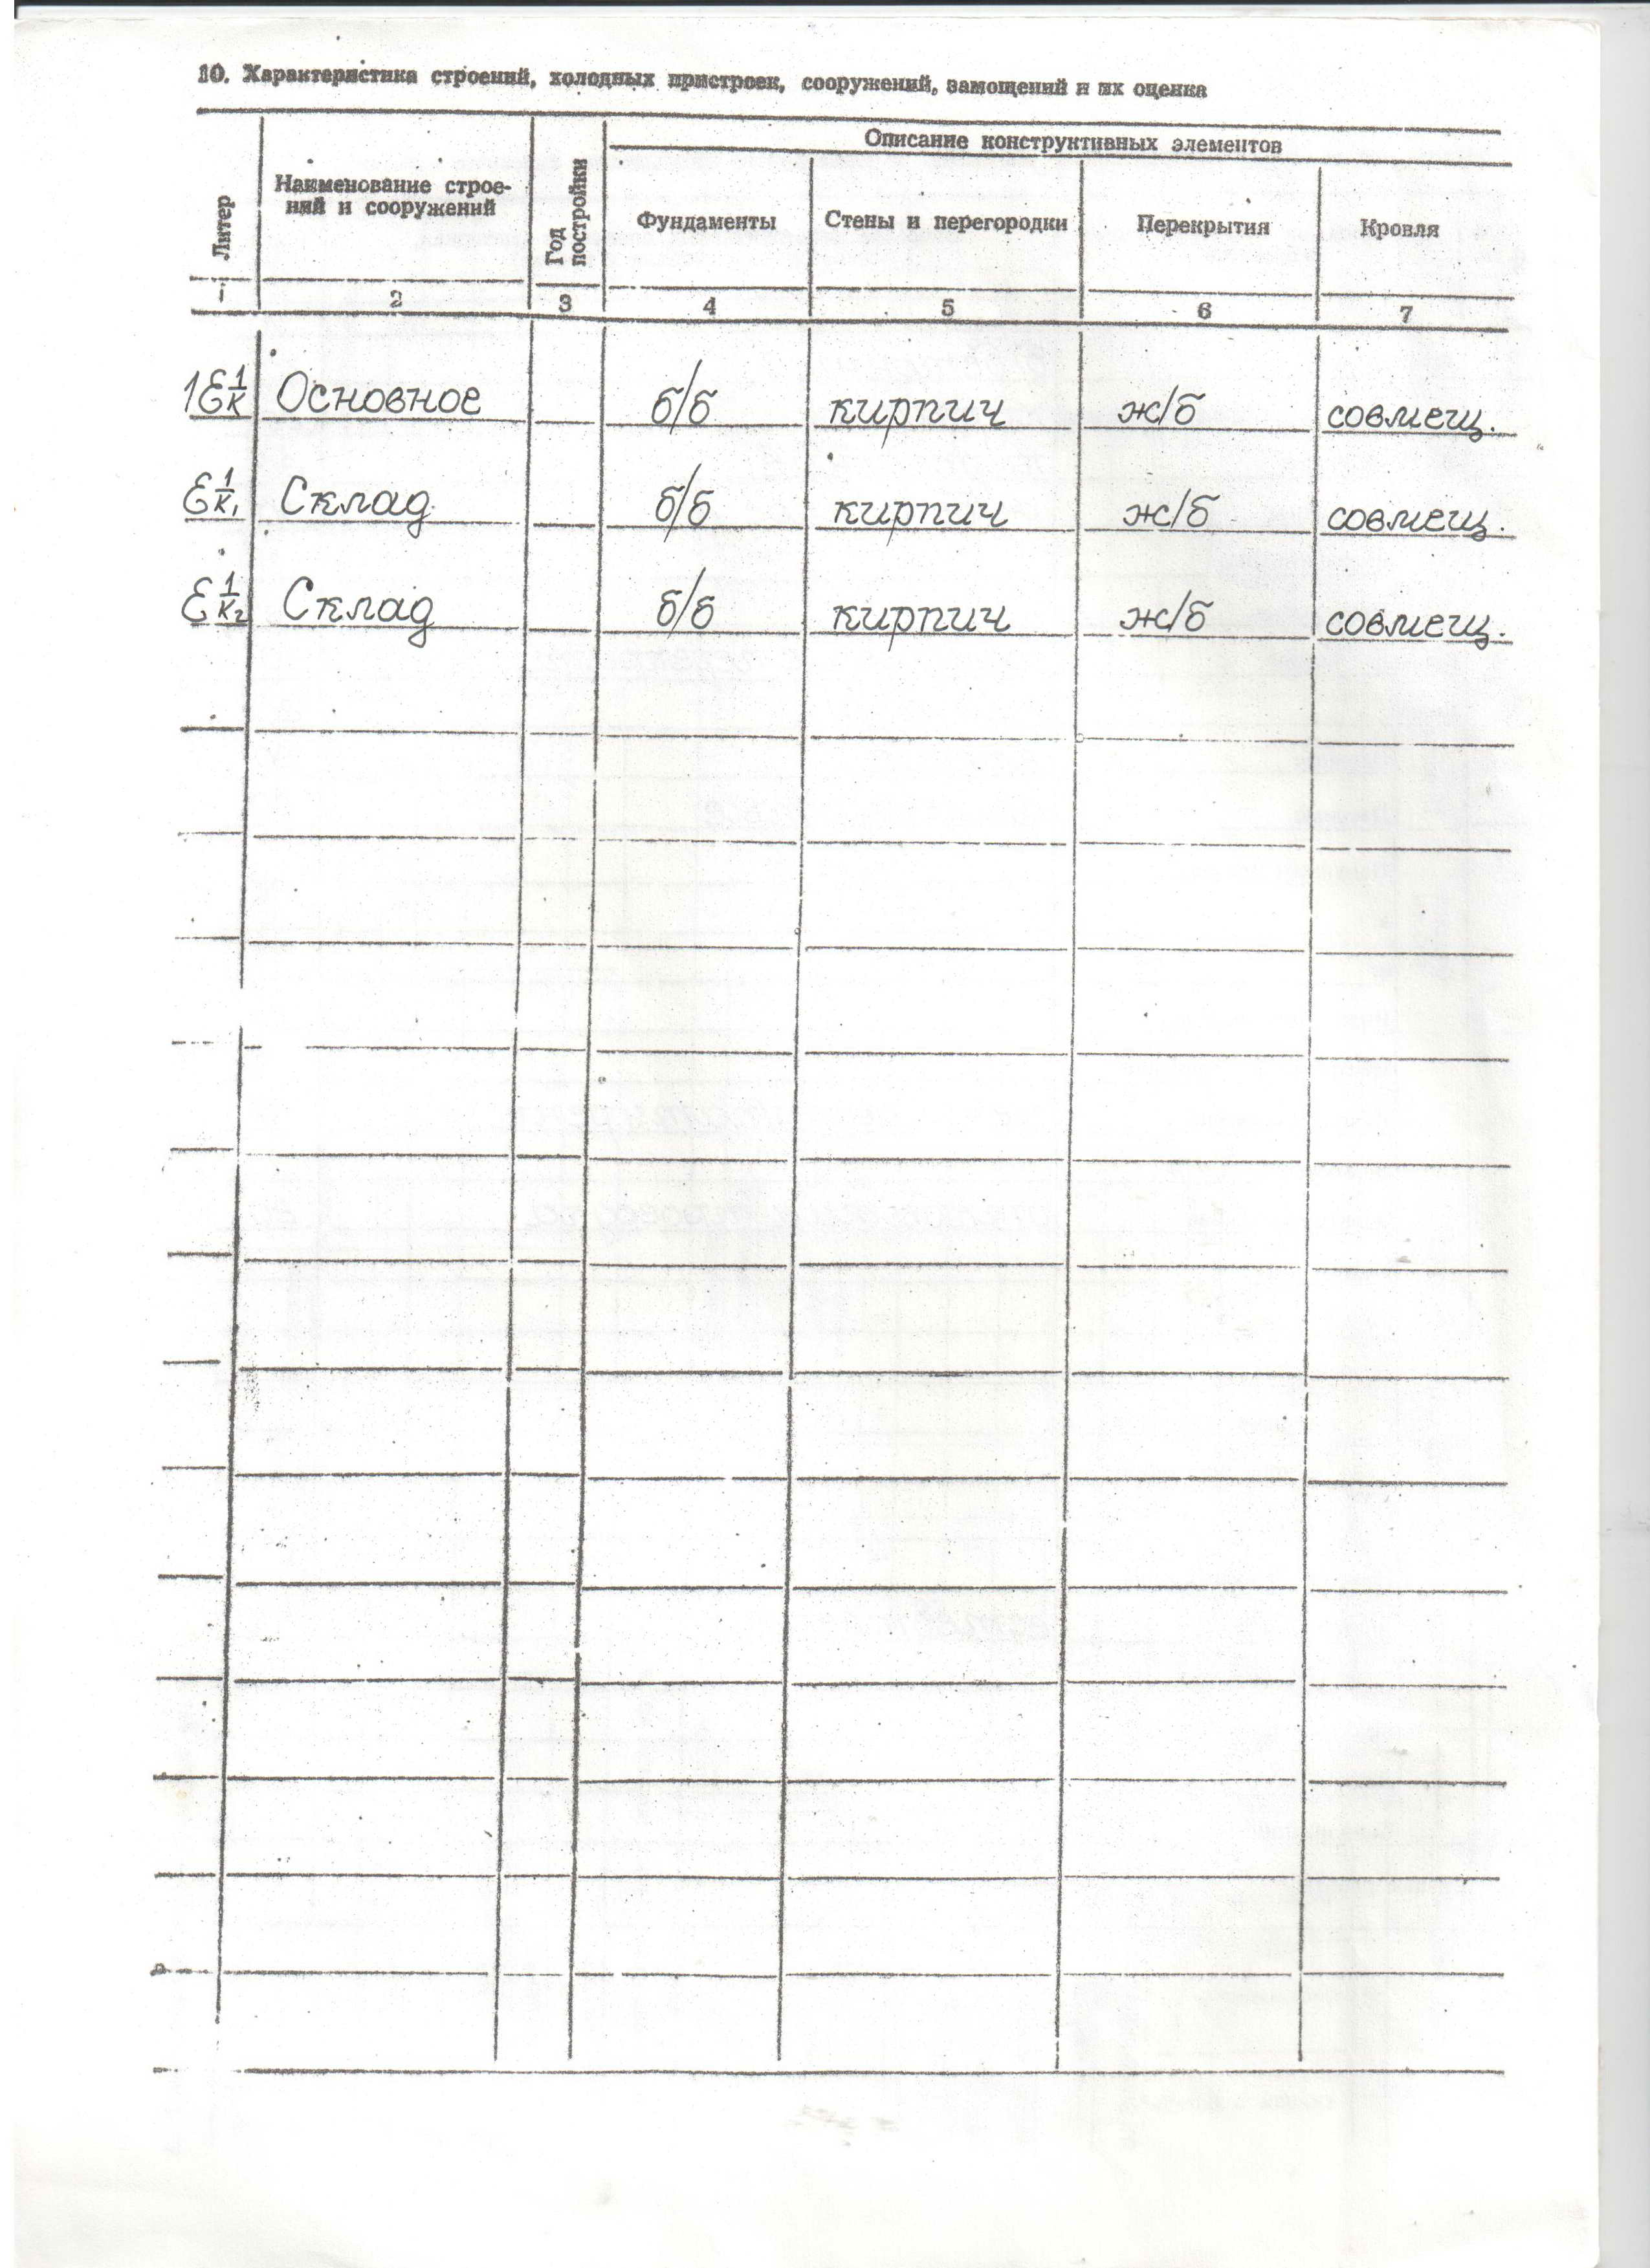 10. Характеристика строений, холодных пристроек, сооружений, замощений и их оценка
Литер
Наименование строе-
ний и сооружений
Год
постройки
Описание конструктивных элементов
Фундаменты
Стены и перегородки
Перекрытия
Кровля
1 2 3 4 5 6 7
1Е 1/К Основное б/б кирпич ж/б совмещ.
Е 1/К1 Склад б/б кирпич ж/б совмещ.
Е 1/К2 Склад б/б кирпич ж/б совмещ.